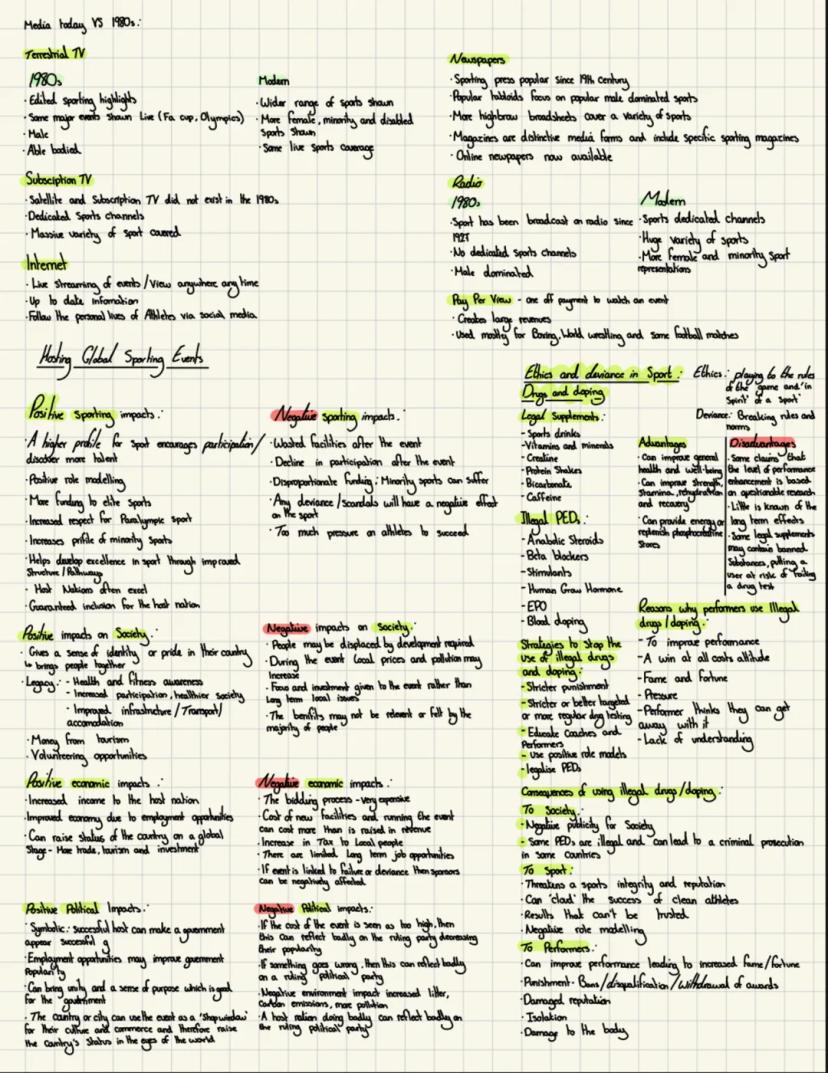 Media today VS 1980s:
Terrestrial TV
1980s
· Edited sporting highlights
· Some major events shown Live (Fa cup, Olympics)
· Male
· Able bodied
Modern
· Wider range of sports shown
· More female, minority and disabled
sports shown
· Some live sports coverage
Subsciption TV
· Satellite and Subscription TV did not exist in the 1980s
· Dedicated Sports channels
· Massive variety of sport covered
Internet
· Live Streaming of events/View anywhere any time
· Up to date information
· Follow the personal lives of Athletes via social media
Newspapers
· Sporting press popular since 19th century
· Popular tabloids focus on popular male dominated sports
· More highbrow broadsheets cover a variety of sports
· Magazines are distinctive media forms and include specific sporting magazines
· Online newpapers now available
Radio
1980s
· Sport has been broadcast on radio since
1927
· No dedicated sports channels
· Male dominated
Modern
· Sports dedicated channels
· Huge variety of sports
· More female and minority sport
representations
Pay Per View - one off payment to watch an event
· Creates large revenues
· Used mostly for Boxing, World wrestling and some football matches
Hosting Global Sporting Events
Positive Sporting impacts:
· A higher profile for sport encourages participation/
discover more talent
· Positive role modelling
· More funding to elite sports
· Increased respect for Paralympic sport
· Increases profile of minority Sports
· Helps develop excellence in sport through improved
Structure/Pathways
· Host Nations often excel
· Guaranteed inclusion for the host nation
Negative sporting impacts:
· Wasted facilities after the event
· Decline in participation after the event
· Disproportionate funding; Minority sports can suffer
· Any deviance/Scandals will have a negative effect
on the sport
· Too much pressure on athletes to succeed
Positive impacts on Society:
· Gives a sense of identity or pride in their country
↳ brings people together
· Legacy: - Health and fitness awareness
- Increased participation, healthier society
- Improved infrastructure/Transport/
accomadation
· Money from tourism
· Volunteering opportunities
Negative impacts on Society:
· People may be displaced by development required
· During the event local prices and pollution may
increase
· Focus and investment given to the event rather than
long term local issues
· The benifits may not be relevent or felt by the
majority of people
Positive economic impacts:
· Increased income to the host nation
· Improved economy due to employment opportunities
· Can raise status of the country on a global
Stage - More trade, tourism and investment
Negative economic impacts:
· The bidding process - very expensive
· Cost of new facilities and running the event
can cost more than is raised in revenue
· Increase in Tax to Local people
· There are limited Long term job opportunities
· If event is linked to failure or deviance then sponsors
can be negatively affected.
Positive Political Impacts:
· Symbolic: successful host can make a government
appear successful
· Employment opportunities may improve government
Popularity
· Can bring unity and a sense of purpose which is good
for the government
· The country or city can use the event as a 'Shop window'
for their culture and commerce and therefore raise
the country's status in the eyes of the world
Negative Political impacts:
· If the cost of the event is seen as too high, then
this can reflect badly on the ruling party decreasing
their popularity
· If something goes wrong, then this can reflect badly
on a ruling political party
· Negative environment impact increased litter,
carbon emissions, more pollution
· A host nation doing badly can reflect badly on
the ruling political party
Ethics and deviance in Sport:
Ethics: playing to the rules
of the game and 'in
Spirit' of a sport
Deviance: Breaking rules and
norms
Drugs and doping
Legal Supplements:
- Sports drinks
- Vitamins and minerals
- Creatine
- Protein Shakes
- Bicarbonate
- Caffeine
Advantages
· Can improve general
health and well-being
· Can improve strength,
stamina, rehydration
and recovery
· Can provide energy or
replenish phosphocreatine
stores
Disadvantages
· Some claims that
the level of performance
enhancement is based
on questionable research
· Little is known of the
long term effects
· Some legal supplements
may contain banned
Substances, putting a
user at risk of failing
a drug test
Illegal PEDs:
- Anabolic Steroids
- Beta blockers
- Stimulants
- Human Grow Hormone
- EPO
- Blood doping
Strategies to stop the
use of illegal drugs
and doping:
- Stricter punishment
- Stricter or better targeted
or more regular drug testing
- Educate Coaches and
Performers
- use positive role models
- legalise PEDs
Reasons why performers use Illegal
drugs/doping:
- To improve performance
- A win at all costs attitude
- Fame and Fortune
- Pressure
- Performer thinks they can get
away with it
- Lack of understanding
Consequences of using illegal drugs/doping:
To Society:
· Negative publicity for Society
· Some PEDs are illegal and can lead to a criminal prosecution
in some Countries
To Sport:
· Threatens a sports integrity and reputation
· Can 'cloud' the success of clean athletes
· Results that can't be trusted
· Negative role modelling
To Performers:
· Can improve performance leading to increased fame/fortune
· Punishment - Bans/disqualification/Withdrawal of awards
· Damaged reputation
· Isolation
· Damage to the body